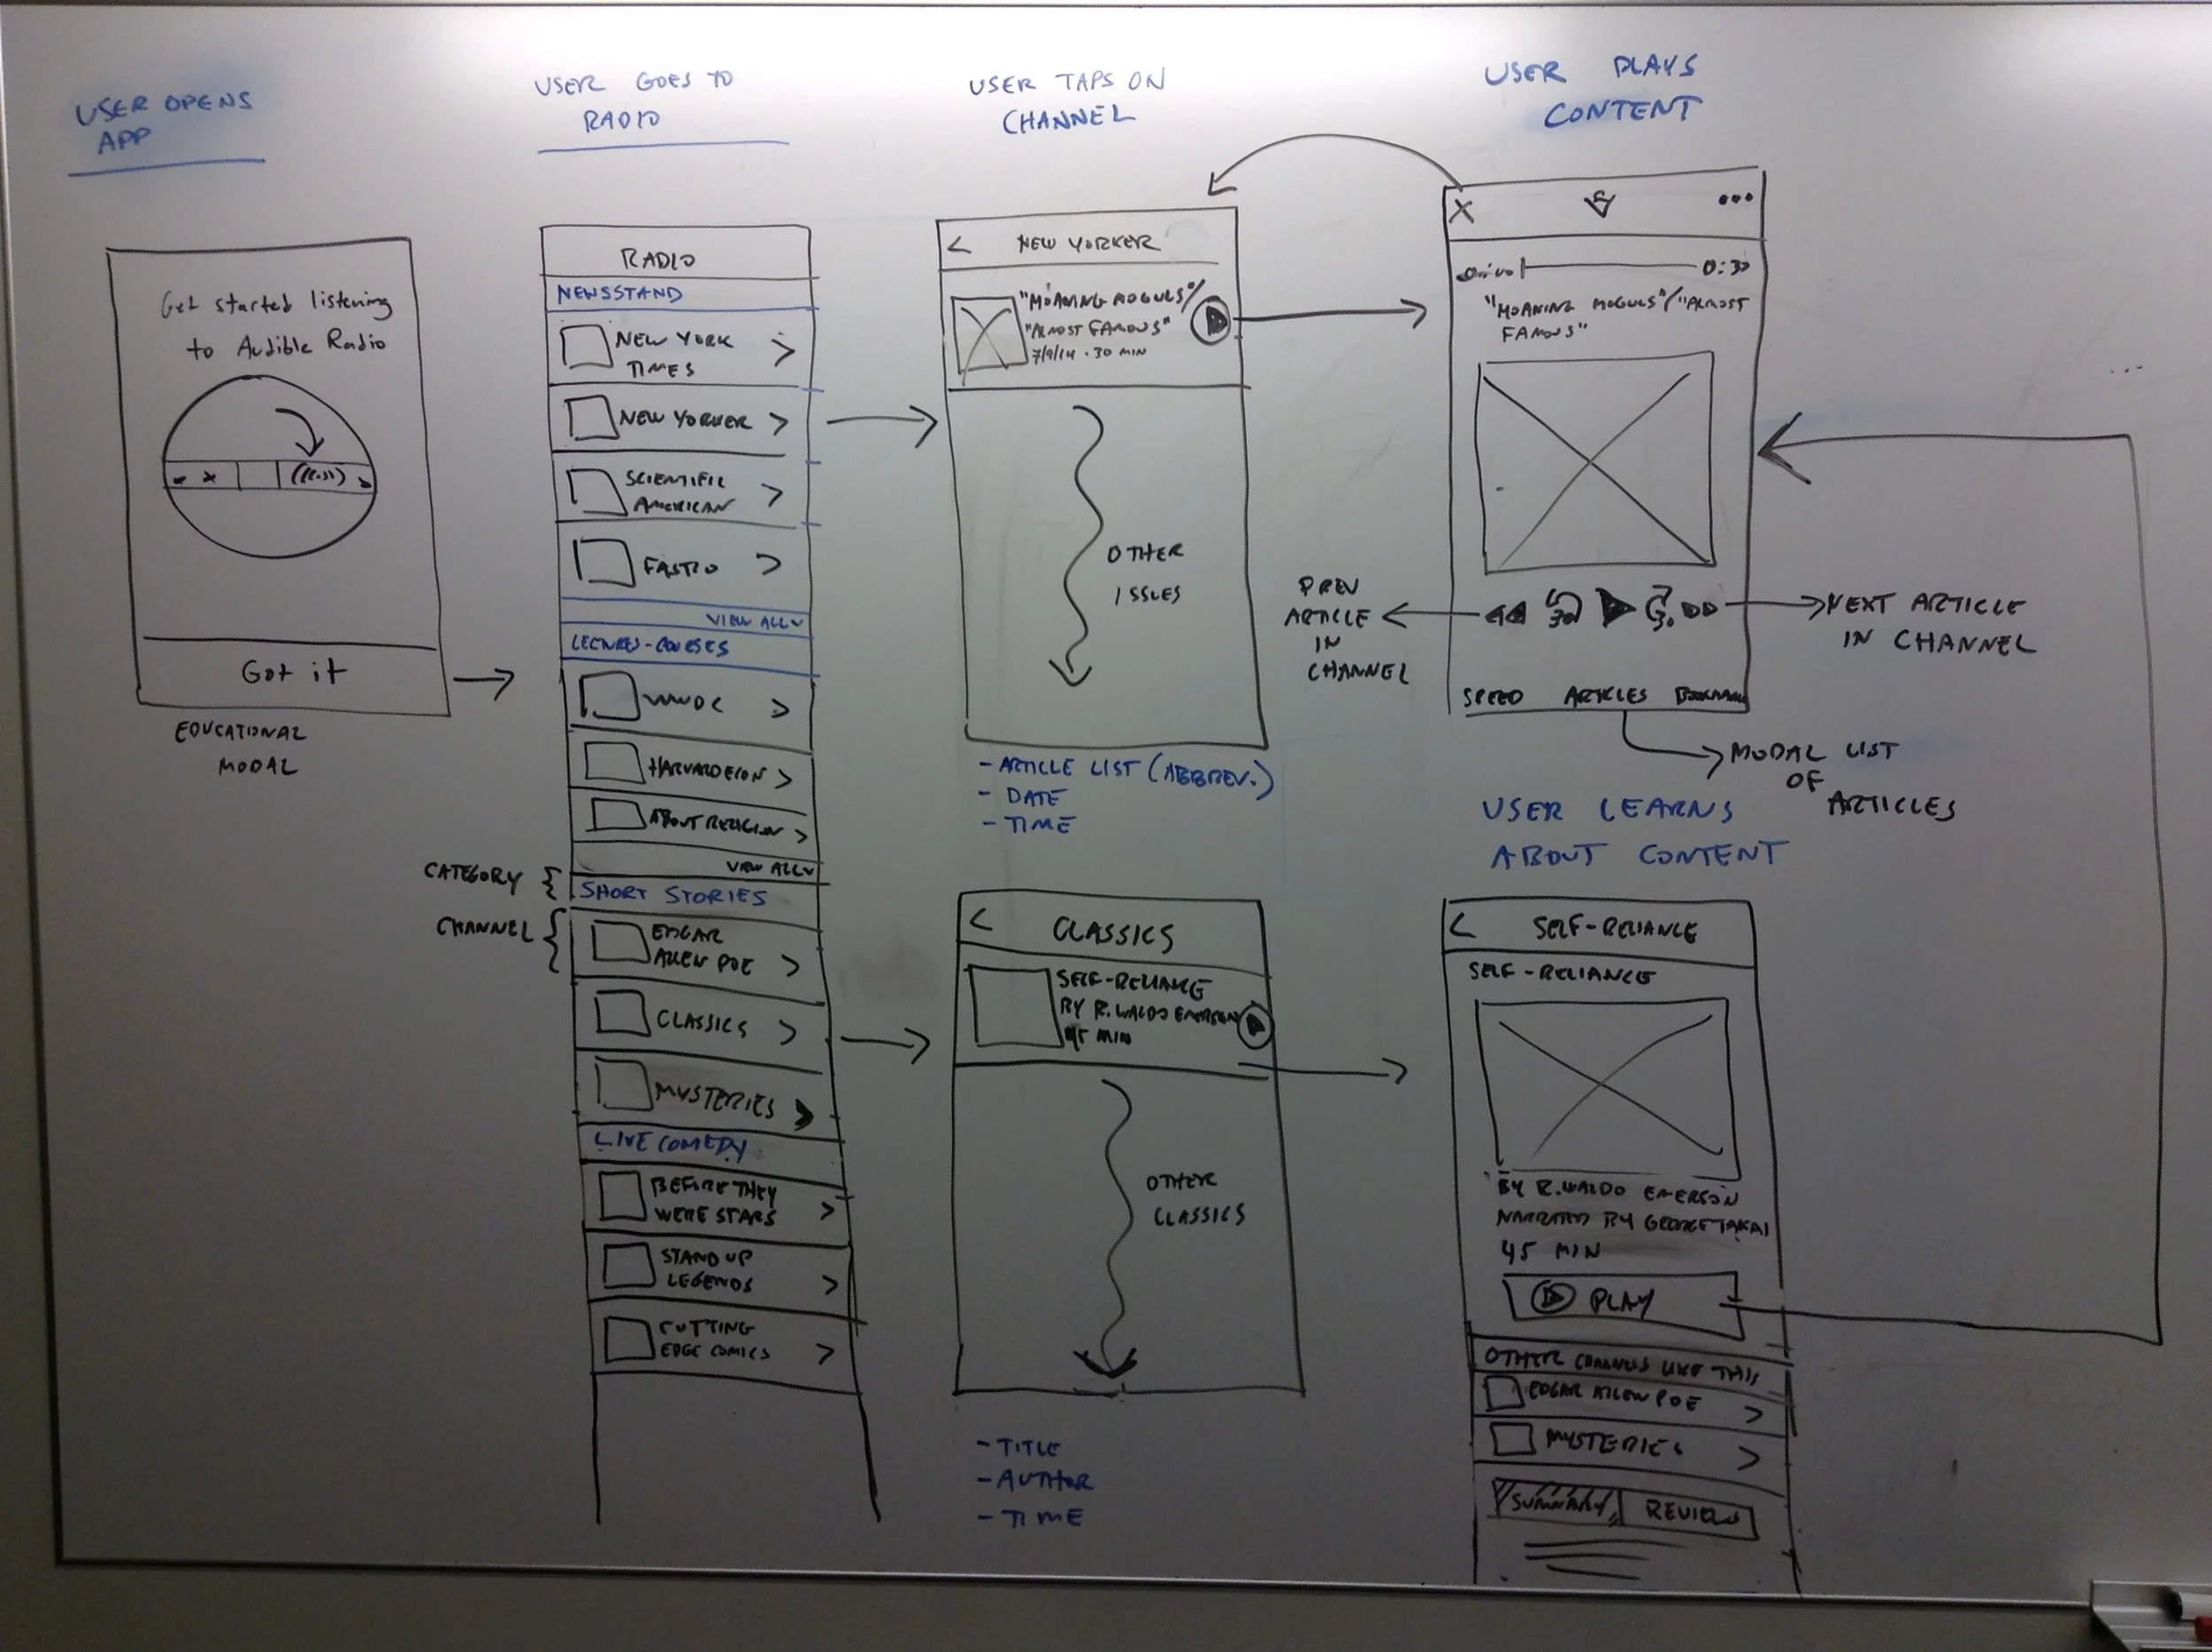 USER OPENS
APP
Get started listening
to Audible Radio
Got it
EDUCATIONAL
MODAL
USER GOES TO
RADIO
RADIO
NEWSSTAND
NEW YORK
TIMES
NEW YORKER
SCIENTIFIC
AMERICAN
VIEW ALL
LECTURES-COURSES
HARVARD ECON
ABOUT RELIGION
VIEW ALL
CATEGORY
SHORT STORIES
CHANNEL
EDGAR
ALLEN POE
CLASSICS
MYSTERIES
LIVE COMEDY
BEFORE THEY
WERE STARS
STAND UP
LEGENDS
CUTTING
EDGE COMICS
USER TAPS ON
CHANNEL
NEW YORKER
"MOANING MOGULS"/
"ALMOST FAMOUS"
7/9/14 · 30 MIN
OTHER
ISSUES
- ARTICLE LIST (ABBREV.)
- DATE
- TIME
CLASSICS
SELF-RELIANCE
BY R. WALDO EMERSON
45 MIN
OTHER
CLASSICS
- TITLE
- AUTHOR
- TIME
USER PLAYS
CONTENT
X
0:30
"MOANING MOGULS"/"ALMOST
FAMOUS"
30
PREV
ARTICLE
IN
CHANNEL
NEXT ARTICLE
IN CHANNEL
SPEED ARTICLES BOOKMARK
MODAL LIST
OF
ARTICLES
USER LEARNS
ABOUT CONTENT
SELF-RELIANCE
SELF-RELIANCE
BY R. WALDO EMERSON
NARRATED BY GEORGE TAKAI
45 MIN
PLAY
OTHER CHANNELS LIKE THIS
EDGAR ALLEN POE
MYSTERIES
SUMMARY REVIEWS